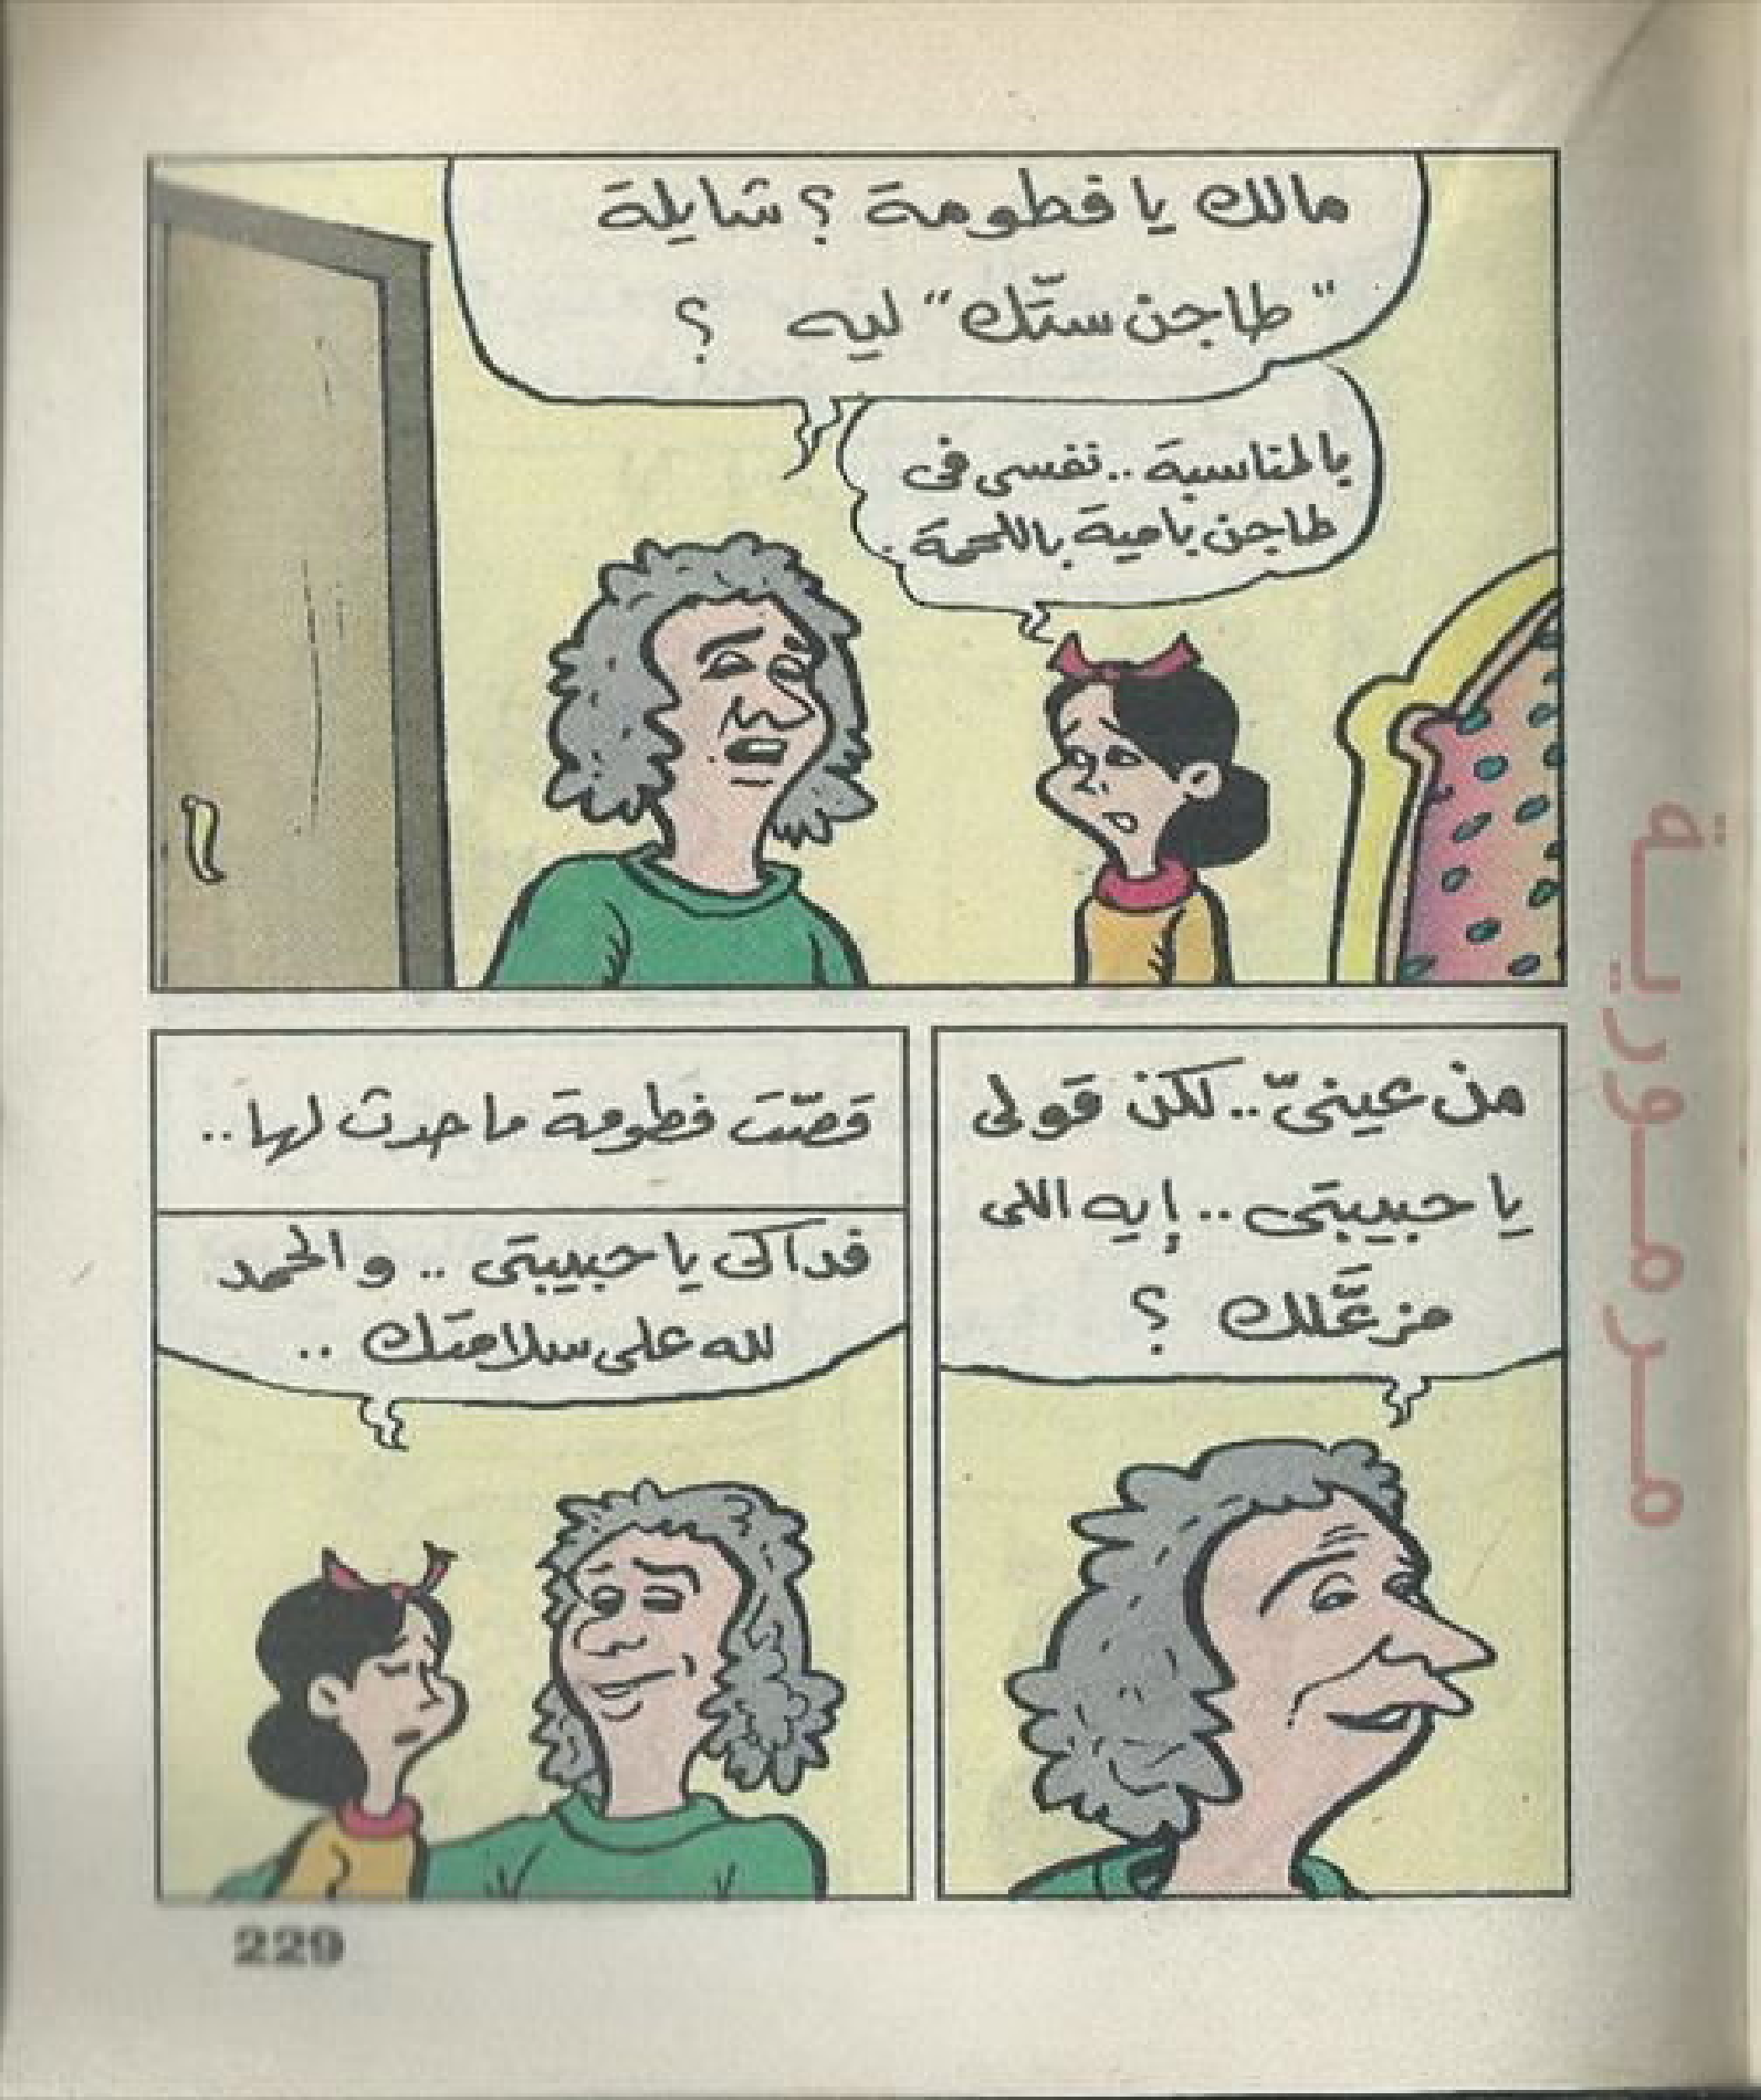 مالك يا فطومة ؟ شايلة
"طاجن ستّك" ليه ؟
بالمناسبة .. نفسى فى
طاجن بامية باللحمة .
من عينىّ .. لكن قولى
يا حبيبتى .. إيه اللى
مزعَّلك ؟
قصّت فطومة ما حدث لها ..
فداكى يا حبيبتى .. والحمد
لله على سلامتك ..
229
مرمورية